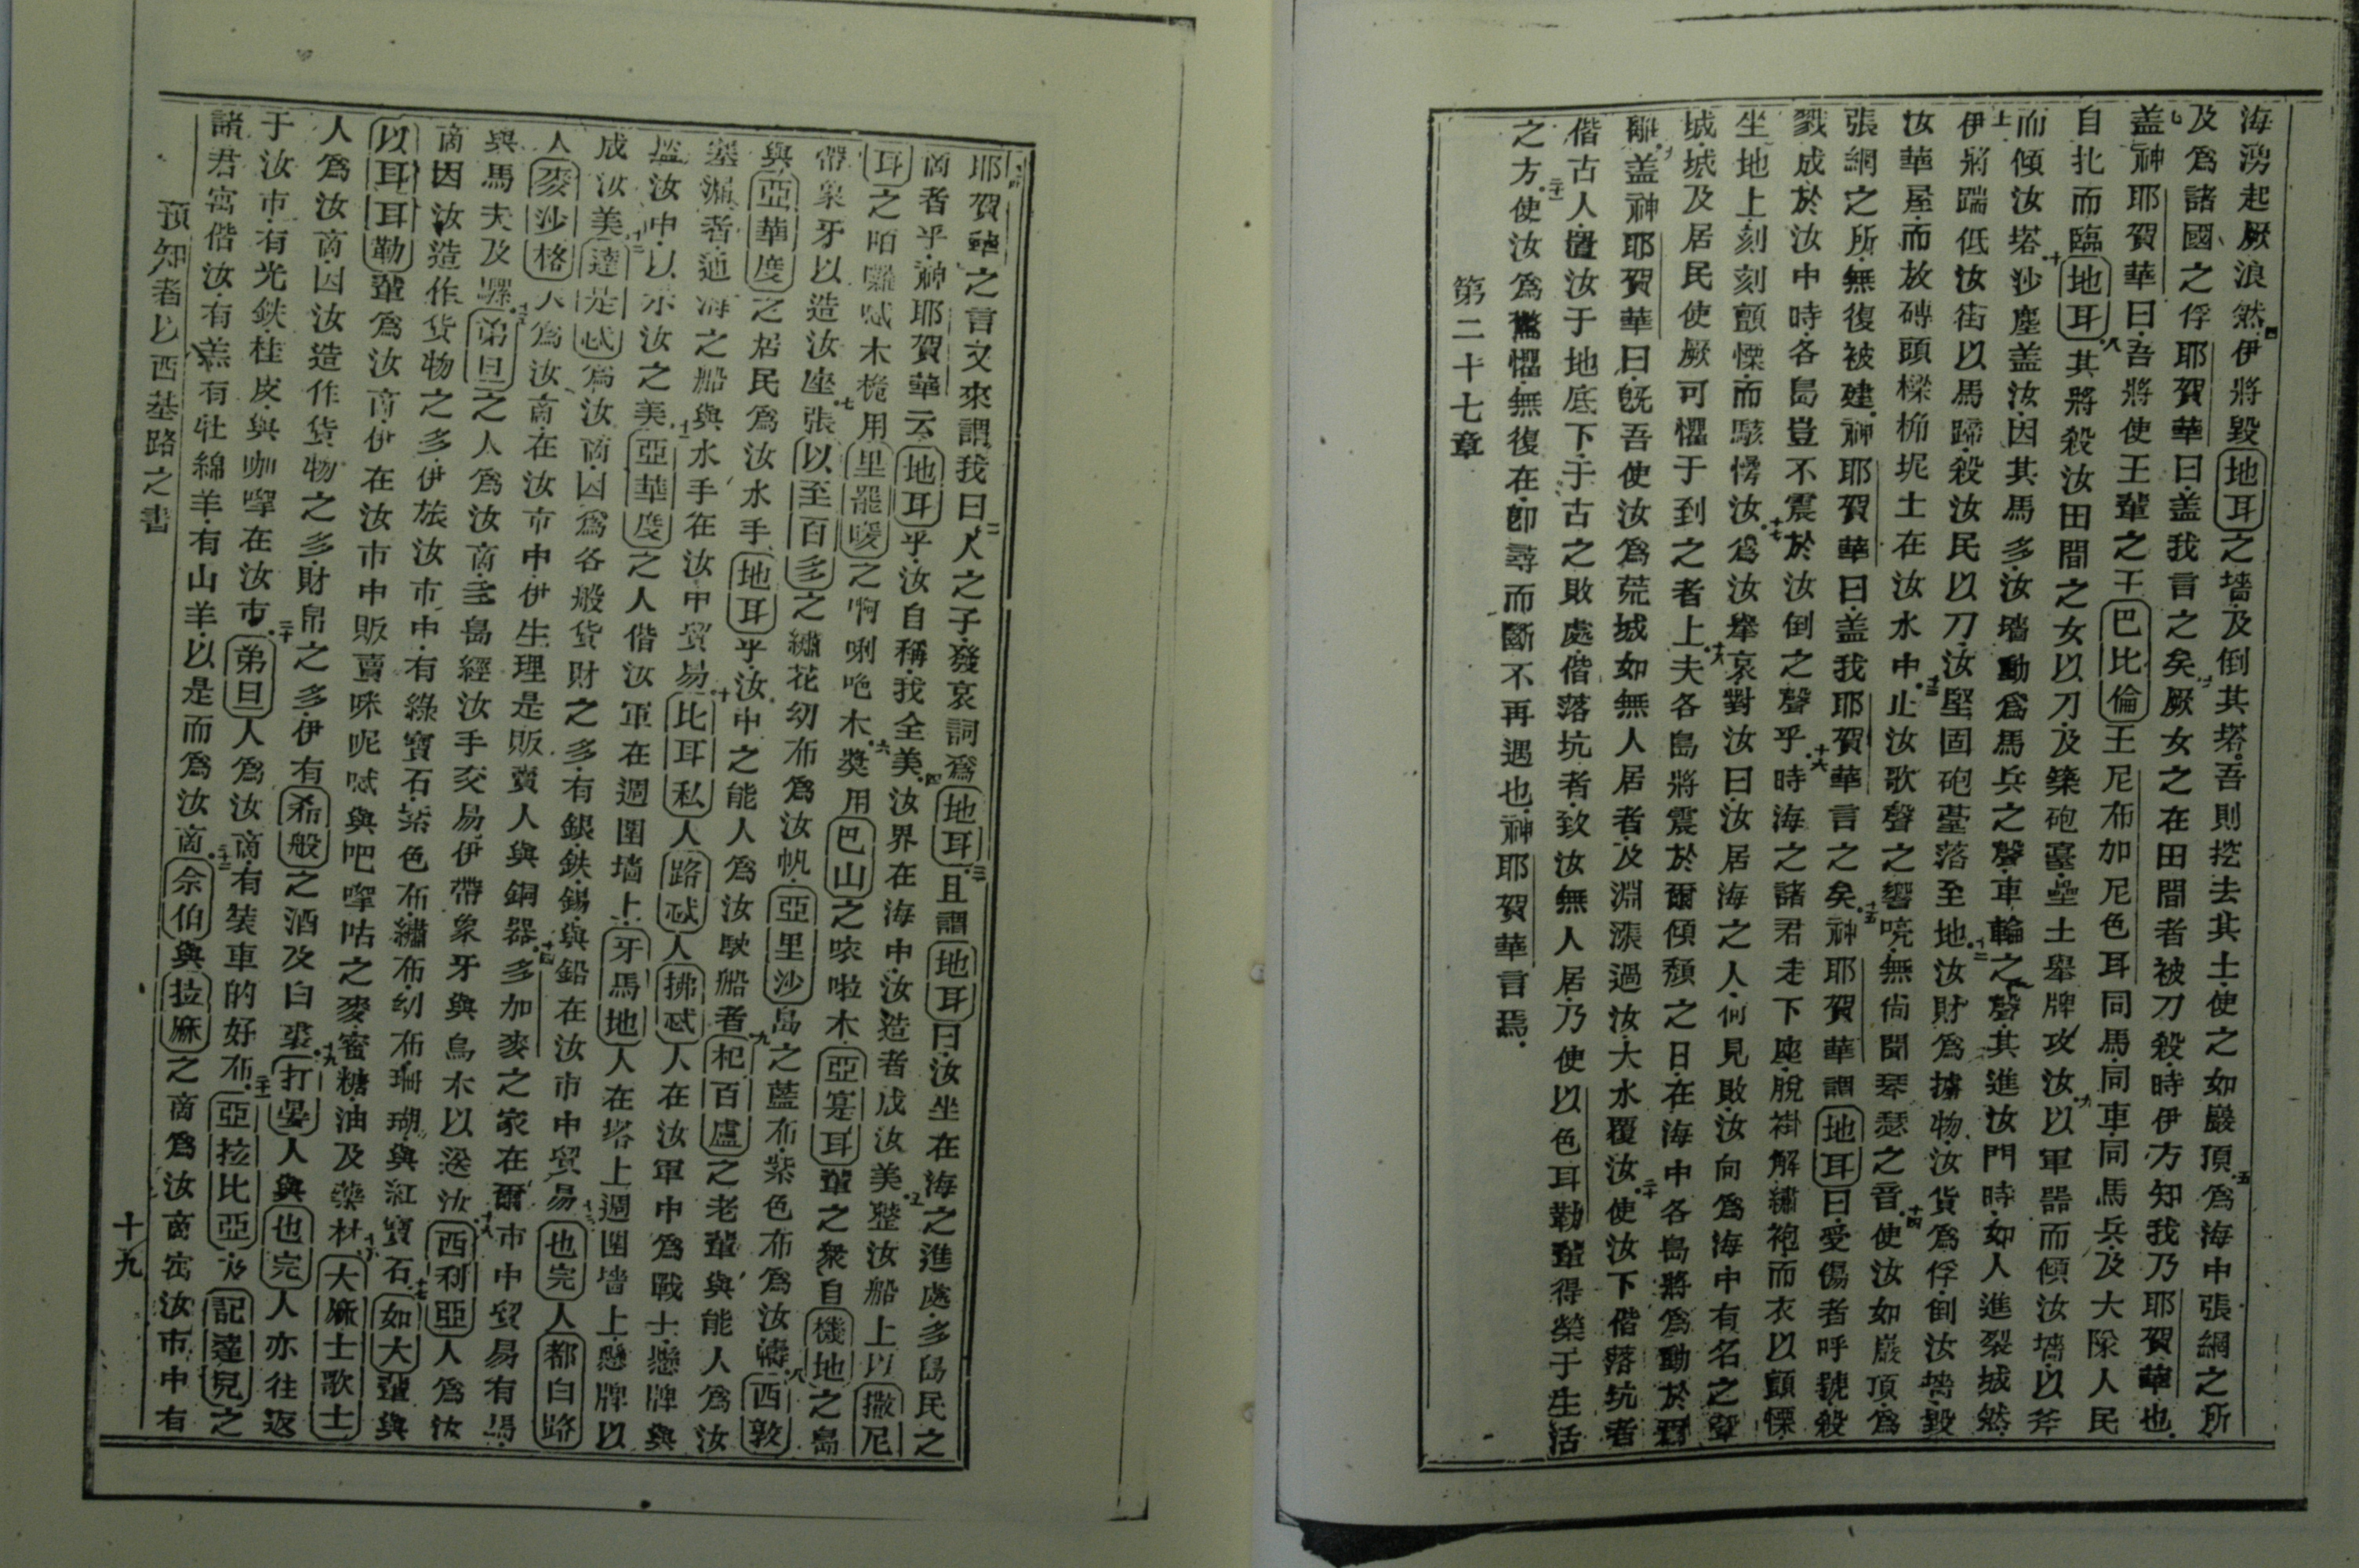 海湧起厥浪然四伊將毀地耳之墻及倒其塔吾則挖去其土使之如巖頂五爲海中張網之所
及爲諸國之俘耶賀華曰盖我言之矣六厥女之在田間者被刀殺時伊方知我乃耶賀華也
七盖神耶賀華曰吾將使王輩之王巴比倫王尼布加尼色耳同馬同車同馬兵及大隊人民
自北而臨地耳八其將殺汝田間之女以刀及築砲臺壘土舉牌攻汝九以軍器而傾汝墻以斧
而傾汝塔十沙塵盖汝因其馬多汝墻動爲馬兵之聲車輪之聲其進汝門時如人進裂城然
十一伊將踹低汝街以馬蹄殺汝民以刀汝堅固砲臺落至地十二汝財爲擄物汝貨爲俘倒汝墻毀
汝華屋而放磚頭樑桷坭土在汝水中十三止汝歌聲之響喨無尙聞琴瑟之音十四使汝如巖頂爲
張網之所無復被建神耶賀華曰盖我耶賀華言之矣十五神耶賀華謂地耳曰愛傷者呼號殺
戮成於汝中時各島豈不震於汝倒之聲乎十六時海之諸君走下座脫褂解繡袍而衣以顫慄
坐地上刻刻顫慄而駭愕汝十七爲汝舉哀對汝曰汝居海之人何見敗汝向爲海中有名之輩
城城及居民使厥可懼于到之者上十八夫各島將震於爾傾頹之日在海中各島將爲動於爾
離十九盖神耶賀華曰旣吾使汝爲荒城如無人居者及淵漲過汝大水覆汝二十使汝下偕落坑者
偕古人置汝于地底下于古之敗處偕落坑者致汝無人居乃使以色耳勒輩得榮于生活
之方二十一使汝爲驚懼無復在卽尋而斷不再遇也神耶賀華言焉
第二十七章
一耶賀華之言又來謂我曰二人之子發哀詞爲地耳三且謂地耳曰汝坐在海之進處多島民之
商者乎神耶賀華云地耳乎汝自稱我全美四汝界在海中汝造者成汝美五整汝船上以撒尼
耳之㕷囒㘓木桅用里罷暖之啊唎吔木六槳用巴山之㕷啦木亞寔耳輩之衆自機地之島
帶象牙以造汝座七張以至百多之繡花幼布爲汝帆亞里沙島之藍布紫色布爲汝幬八西敦
與亞華度之居民爲汝水手地耳乎汝中之能人爲汝駛船者九杞百盧之老輩與能人爲汝
塞漏者通海之船與水手在汝中貿易十比耳私人路忒人拂忒人在汝軍中爲戰士懸牌與
盔汝中以示汝之美十一亞華度之人偕汝軍在週圍墻上牙馬地人在塔上週圍墻上懸牌以
成汝美十二達是忒爲汝商因爲各般貨財之多有銀鉄錫與鉛在汝市中貿易十三也完人都白路
人麥沙格人爲汝商在汝市中伊生理是販賣人與銅器十四多加麥之家在爾市中貿易有馬
與馬夫及騾十五弟旦之人爲汝商多島經汝手交易伊帶象牙與烏木以送汝十六西利亞人爲汝
商因汝造作貨物之多伊旅汝市中有綠寶石紫色布繡布幼布珊瑚與紅寶石十七如大輩與
以耳耳勒輩爲汝商伊在汝市中販賣咪呢㘓與吧㘔咕之麥蜜糖油及藥材十八大麻士歌士
人爲汝商因汝造作貨物之多財帛之多伊有希般之酒及白裘十九打晏人與也完人亦往返
于汝市有光鉄桂皮與咖㘔在汝市二十弟旦人爲汝商有裝車的好布二十一亞拉比亞及記達兒之
諸君寓偕汝有羔有牡綿羊有山羊以是而爲汝商二十二佘伯與拉麻之商爲汝商寓汝市中有
預知者以西基路之書
十九